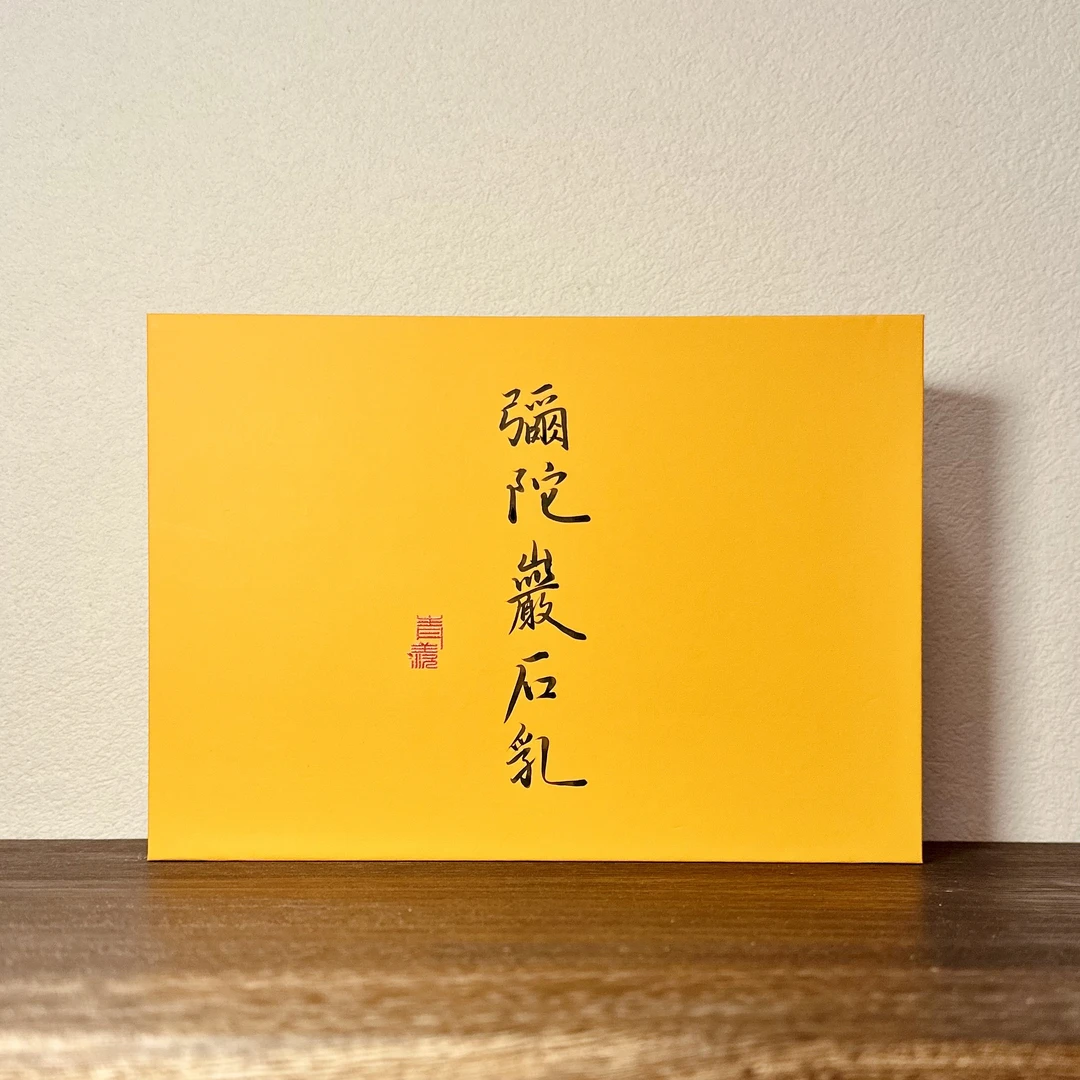 彌陀巖石乳